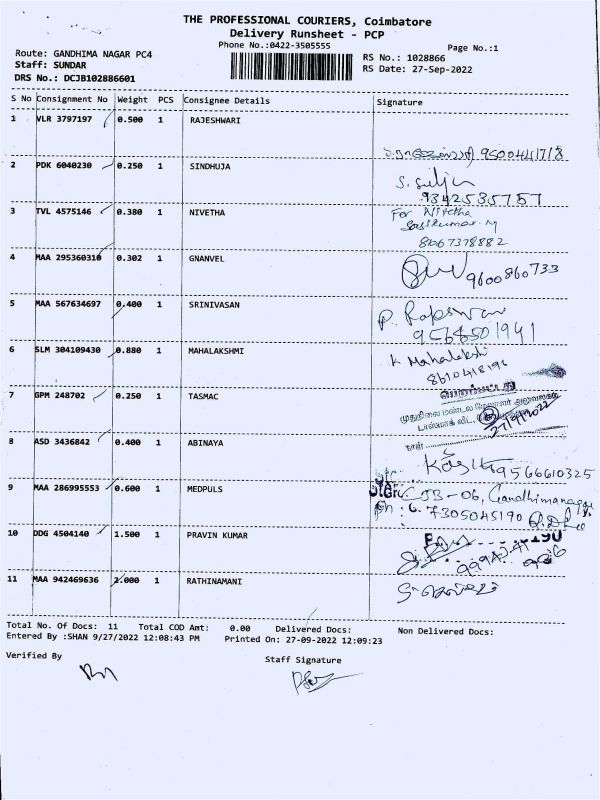 THE PROFESSIONAL COURIERS, Coimbatore
Delivery Runsheet - PCP
Phone No.:0422-3505555
Page No.:1
Route: GANDHIMA NAGAR PC4
Staff: SUNDAR
DRS No.: DCJB102886601
RS No.: 1028866
RS Date: 27-Sep-2022
S No Consignment No Weight PCS Consignee Details Signature
1 VLR 3797197 0.500 1 RAJESHWARI
9500441718
2 PDK 6040230 0.250 1 SINDHUJA
9342535757
3 TVL 4575146 0.380 1 NIVETHA For Nivetha
Sasikumar. M
8667378882
4 MAA 295360310 0.302 1 GNANVEL
9600860733
5 MAA 567634697 0.400 1 SRINIVASAN P.
6 SLM 304109430 0.880 1 MAHALAKSHMI K Mahalakshi
7 GPM 248702 0.250 1 TASMAC
முதுநிலை மண்டல மேலாளர் அலுவலகம்
27/9/2022
நாள்
8 ABD 3436842 0.400 1 ABINAYA
9566610325
9 MAA 286995553 0.600 1 MEDPULS CJB-06, Gandhimanagar
Ph: 7305045190
10 DDG 4504140 1.500 1 PRAVIN KUMAR
11 MAA 942469636 2.000 1 RATHINAMANI
Total No. Of Docs: 11 Total COD Amt: 0.00 Delivered Docs: Non Delivered Docs:
Entered By :SHAN 9/27/2022 12:08:43 PM Printed On: 27-09-2022 12:09:23
Verified By
Staff Signature